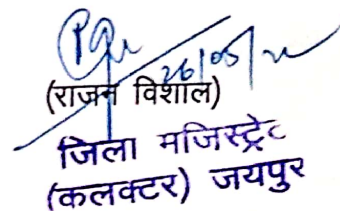 26/05/22
(राजन विशाल)
जिला मजिस्ट्रेट
(कलक्टर) जयपुर